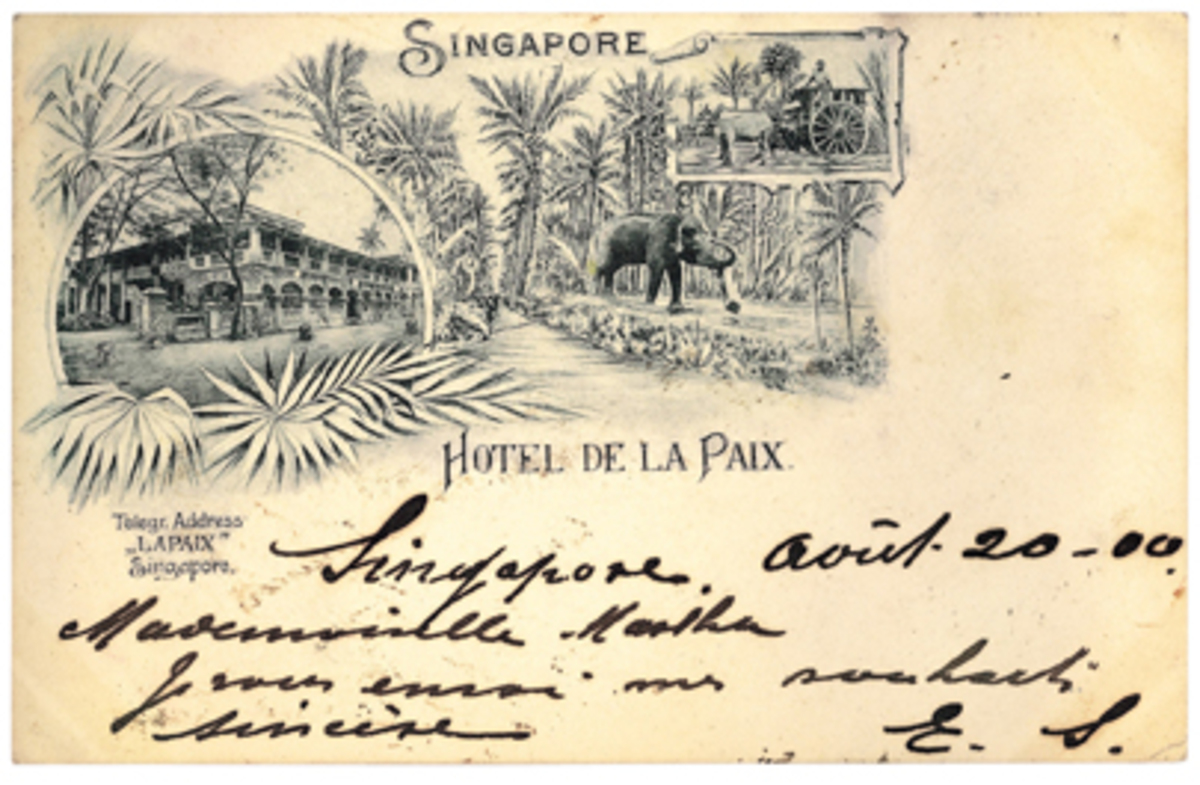 SINGAPORE
HOTEL DE LA PAIX.
Telegr. Address
„LAPAIX”
Singapore.
Singapore, Août 20-00.
Mademoiselle Martha
Je vous envoi mes souhaits
sincère
E. S.